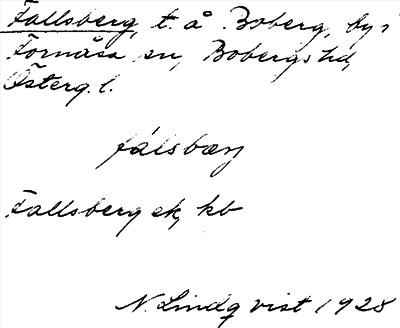 Fallsberg, t. å Boberg, by i
Fornåsa sn, Bobergs hd,
Österg. l.
fálsbærj
Fallsberg ek, kb
N. Lindqvist 1928